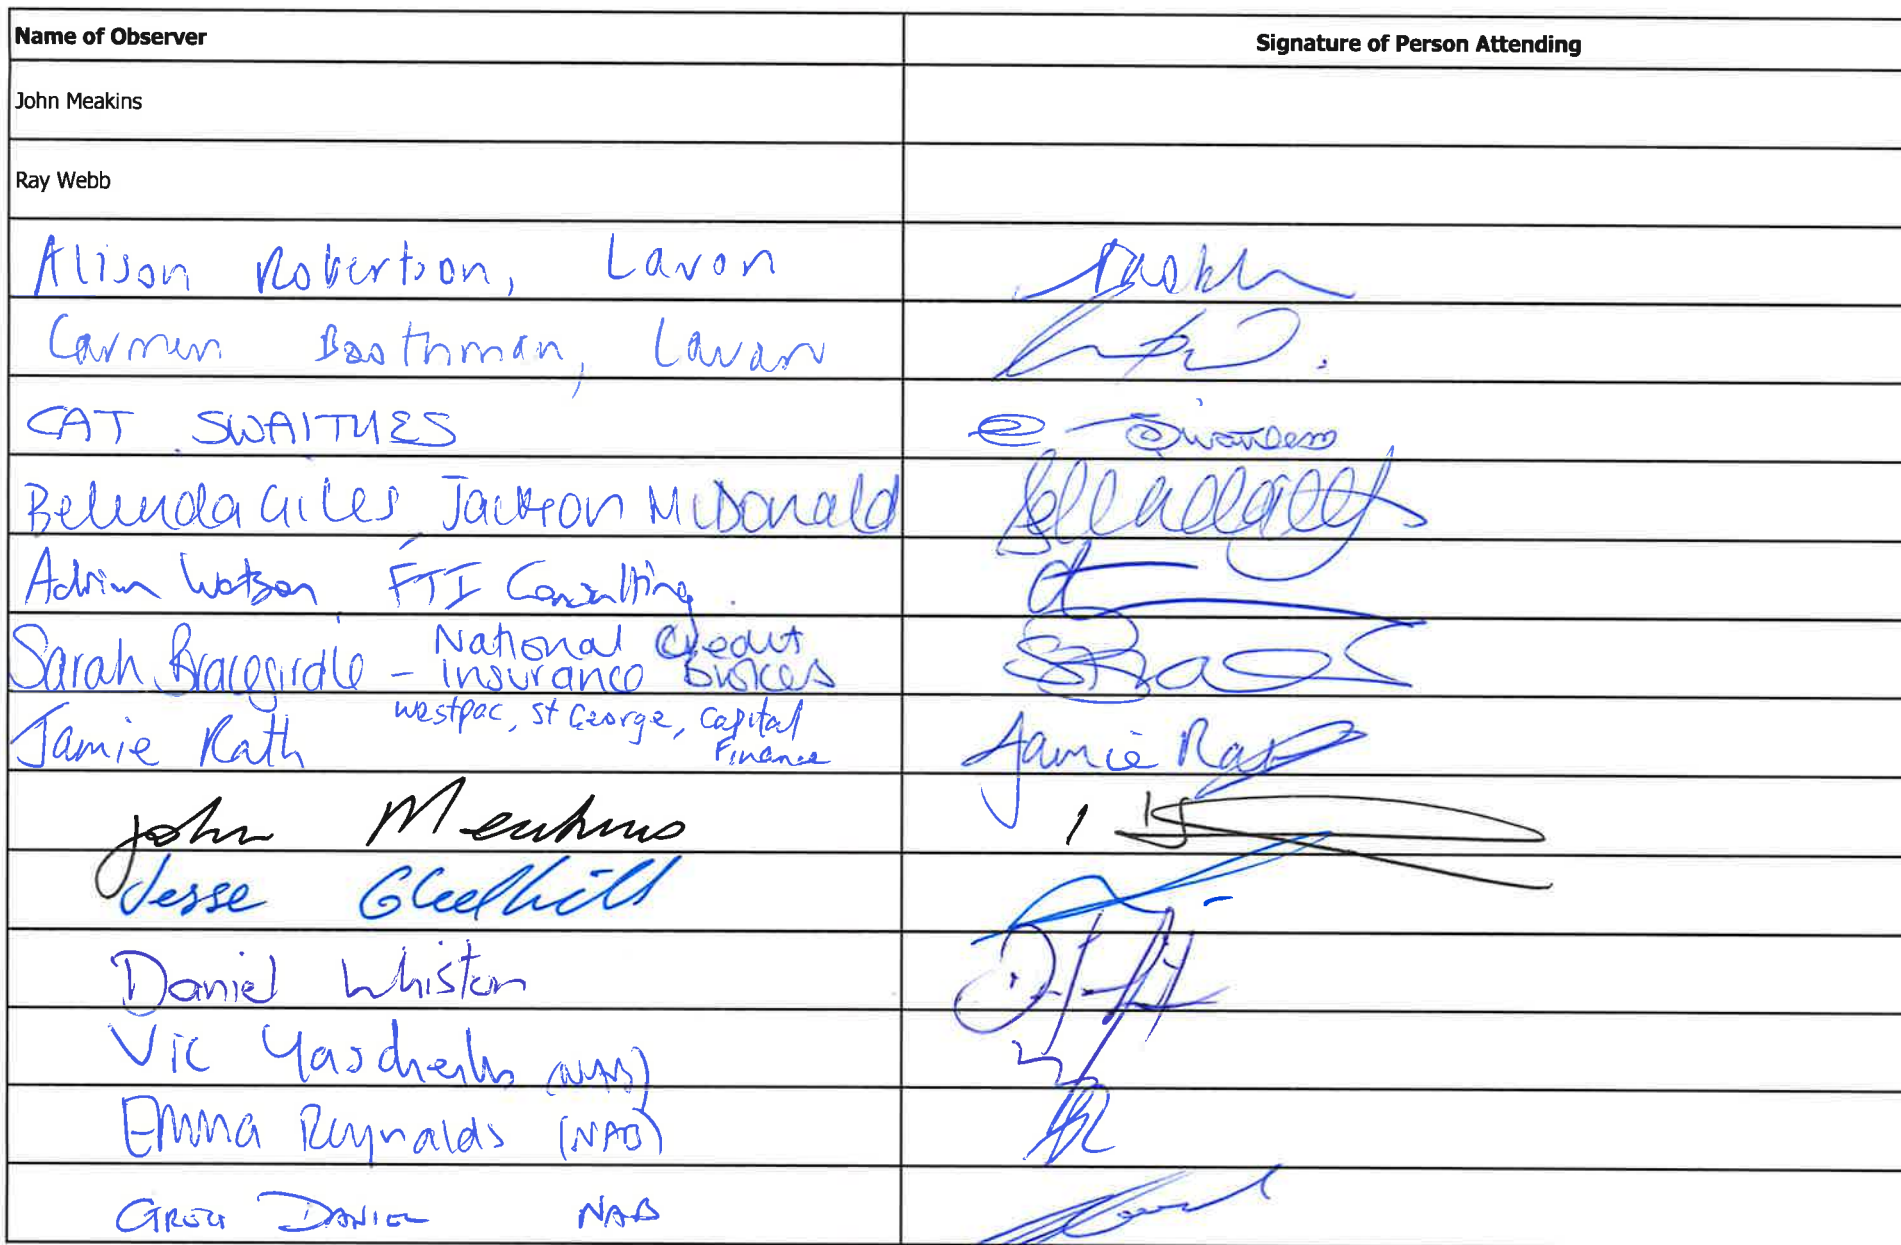 Name of Observer Signature of Person Attending
John Meakins
Ray Webb
Alison Robertson, Lavan
Carmen Boothman, Lavan
CAT SWAITHES
Belinda Giles Jackson McDonald
Adrian Watson FTI Consulting
Sarah Bracegirdle - National Credit
Insurance Brokers
Jamie Rath Westpac, St George, Capital
Finance Jamie Rath
John Meakins
Jesse Gledhill
Daniel Whiston
Vic (NAB)
Emma Reynolds (NAB)
GREG DANIEL NAB